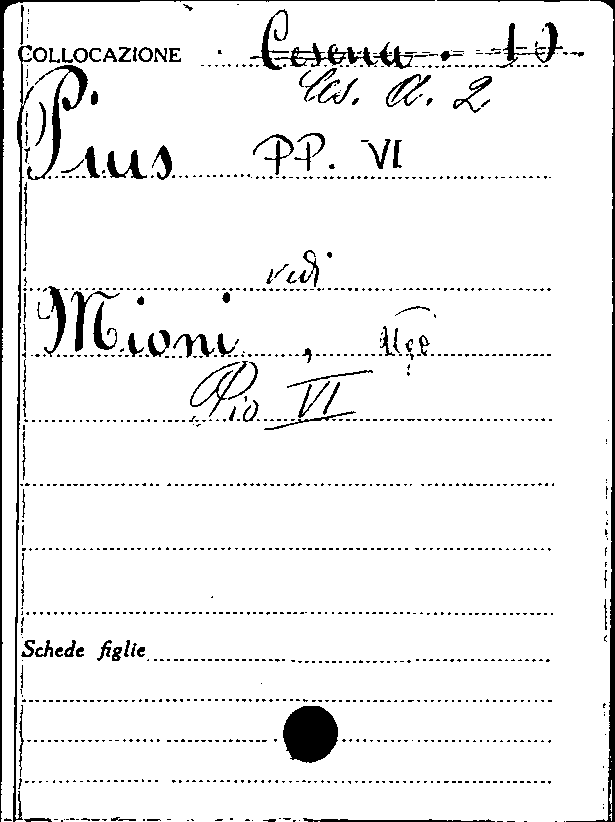 COLLOCAZIONE Cesena . 10
Ces. A. 2
Pius PP. VI
vedi
Mioni, Ugo
Pio VI
Schede figlie